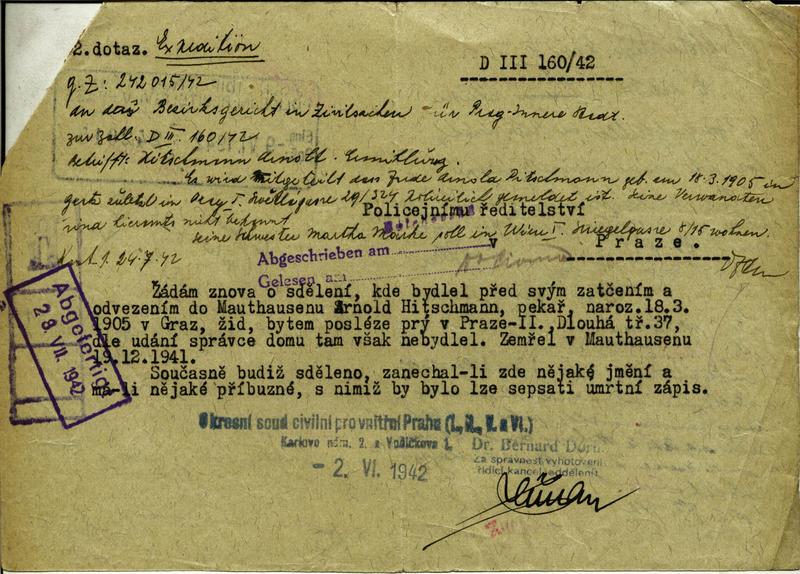 2. dotaz. Expedition
D III 160/42
g. Z: 242015/42
an das Bezirksgericht in Zivilsachen für Prag-Innere Stadt.
zur Zahl: D III. 160/42
Betrifft: Hitschmann Arnold. Ermittlung.
Es wird mitgeteilt dass Jude Arnold Hitschmann geb. am 18.3.1905 in
Graz zuletzt in Prag I. 29/324 polizeilich gemeldet ist. Seine Verwandten
sind hieramts nicht bekannt.
Policejnímu ředitelství
Seine Schwester Martha soll in Wien I. Spiegelgasse 8/15 wohnen.
v Praze.
Prag 24.7.42
Abgeschrieben am
Gelesen am
Abgefertigt
28 VII. 1942
Žádám znova o sdělení, kde bydlel před svým zatčením a
odvezením do Mauthausenu Arnold Hitschmann, pekař, naroz.18.3.
1905 v Graz, žid, bytem posléze prý v Praze-II. Dlouhá tř.37,
dle udání správce domu tam však nebydlel. Zemřel v Mauthausenu
19.12.1941.
Současně budiž sděleno, zanechal-li zde nějaké jmění a
má-li nějaké příbuzné, s nimiž by bylo lze sepsati úmrtní zápis.
Okresní soud civilní pro vnitřní Prahu (I., II., V. a VI.)
Karlovo nám. 2. a Vodičkova 1.
Dr. Bernard Dorn
- 2. VI. 1942
Za správnost vyhotovení
řídící kancel. oddělení: